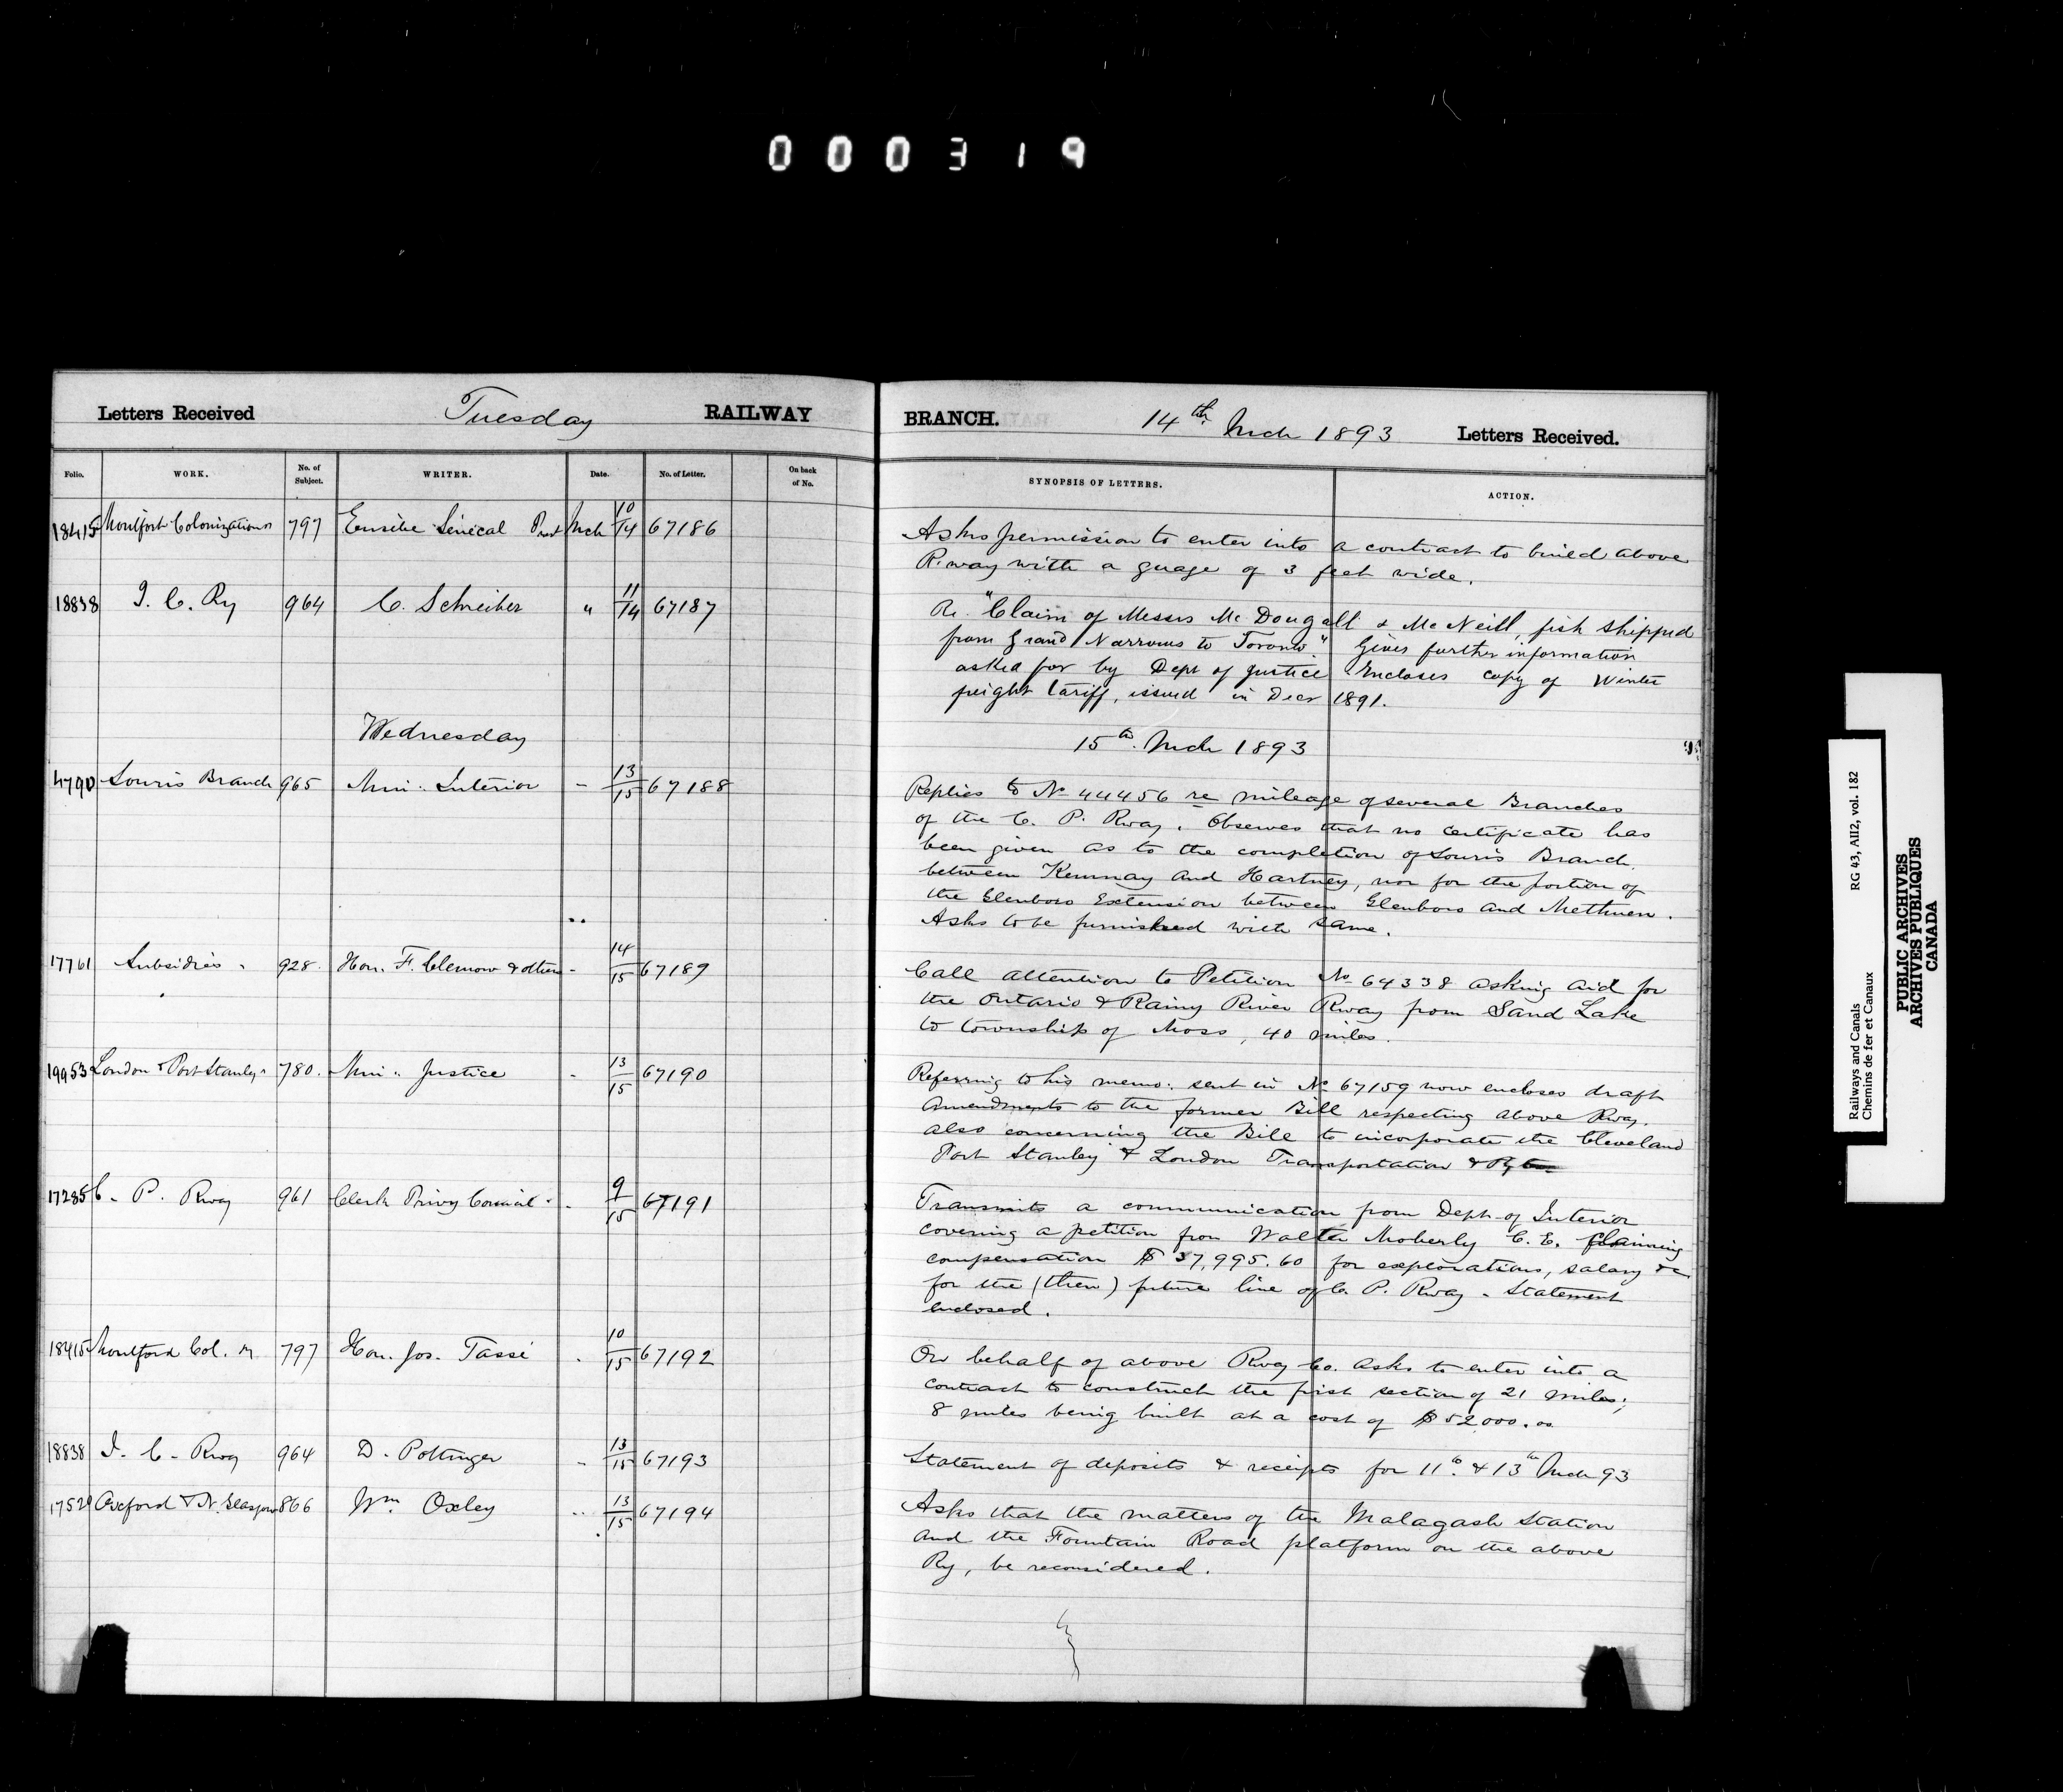 000319
Letters Received Tuesday RAILWAY BRANCH. 14th Mch 1893 Letters Received.
Folio. WORK. No. of Subject. WRITER. Date. No. of Letter. On back of No. SYNOPSIS OF LETTERS. ACTION.
18415 Montfort Colonization 797 Eusèbe Sénécal Mch 10/14 67186 Asks permission to enter into a contract to build above
R.way with a guage of 3 feet wide.
18838 I. C. Ry 964 C. Schreiber " 11/14 67187 Re. "Claim of Messrs McDougall & McNeill, fish shipped
from Grand Narrows to Toronto". Gives further information
asked for by Dept of Justice Encloses copy of Winter
freight tariff, issued in Decr 1891.
Wednesday 15th Mch 1893
4790 Souris Branch 965 Min. Interior - 13/15 67188 Replies to No 44456 re mileage of several Branches
of the C. P. Rway. Observes that no certificate has
been given as to the completion of Souris Branch
between Kemnay and Hartney, nor for the portion of
the Glenboro Extension between Glenboro and Methuen.
Asks to be furnished with same.
17761 Subsidies. 928. Hon. F. Clemow & others - 14/15 67189 Call attention to Petition No 64338 asking aid for
the Ontario & Rainy River Rway from Sand Lake
to township of Moss, 40 miles.
19953 London & Port Stanley 780. Min. Justice - 13/15 67190 Referring to his memo. sent in No 67159 now encloses draft
Amendments to the former Bill respecting above Rway.
also concerning the Bill to incorporate the Cleveland
Port Stanley & London Transportation & Ry Co.
17285 C. P. Rway 961 Clerk Privy Council - 9/15 67191 Transmits a communication from Dept of Interior
covering a petition from Walter Moberly C. E. claiming
compensation $37,995.60 for explorations, salary &c
for the (then) future line of C. P. Rway. Statement
enclosed.
18415 Montford Col. 797 Hon. Jos. Tassé . 10/15 67192 On behalf of above Rway Co. asks to enter into a
contract to construct the first section of 21 miles;
8 miles being built at a cost of $52,000.00
18838 I. C. Rway 964 D. Pottinger - 13/15 67193 Statement of deposits & receipts for 11th & 13th Mch 93
17529 Oxford & N. Glasgow 866 Wm. Oxley .. 13/15 67194 Asks that the matters of the Malagash Station
and the Fountain Road platform on the above
Ry, be reconsidered.
Railways and Canals RG 43, AII2, vol. 182
Chemins de fer et Canaux
PUBLIC ARCHIVES
ARCHIVES PUBLIQUES
CANADA